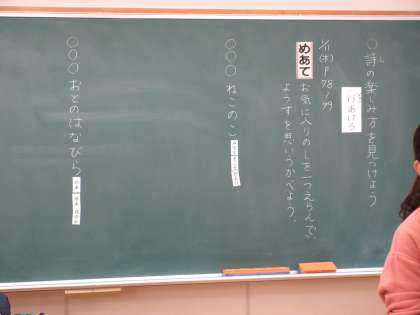 ○詩の楽しみ方を見つけよう
し
行あける
2/1(木)P78~79
めあて
お気に入りのしを一つえらんで、
ようすを思いうかべよう。
○○○ねこのこ
○○○おとのはなびら